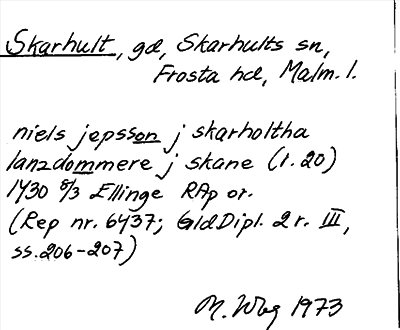 Skarhult, gd, Skarhults sn,
Frosta hd, Malm. l.
niels jepsson j skarholtha
lanzdommere j skane (r. 20)
1430 8/3 Ellinge RAp or.
(Rep nr. 6437; GldDipl. 2 r. III,
ss. 206-207)
M. Wbg 1973